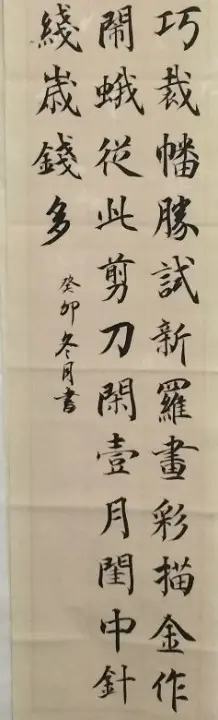 巧裁幡勝試新羅畫彩描金作
鬧蛾從此剪刀閑壹月閨中針
綫歲錢多
癸卯冬月書